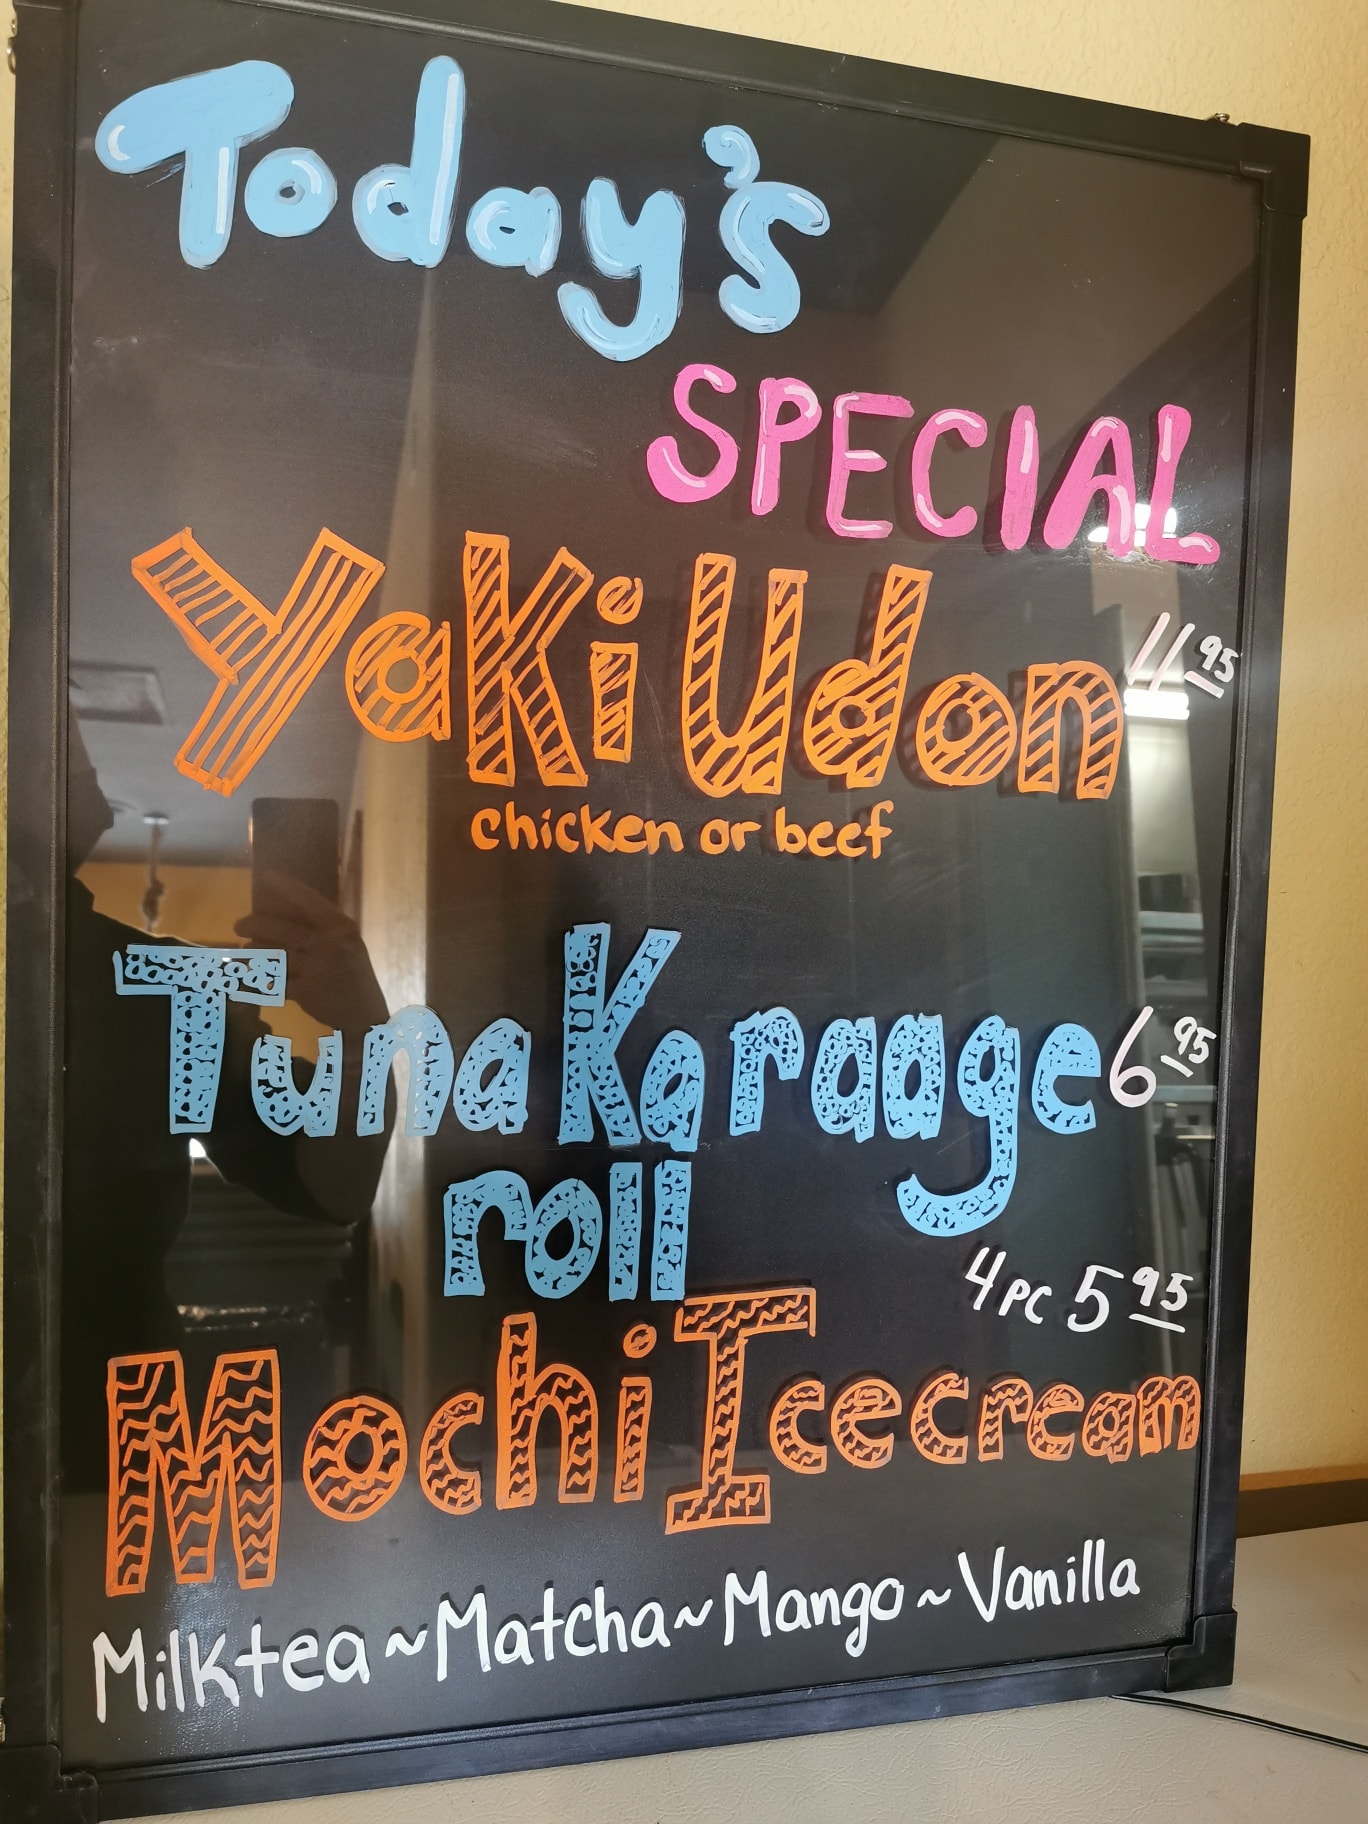 Today's
SPECIAL
Yaki Udon 11.95
chicken or beef
Tuna Karaage 6.95
roll
4 pc 5.95
Mochi Icecream
Milktea ~ Matcha ~ Mango ~ Vanilla